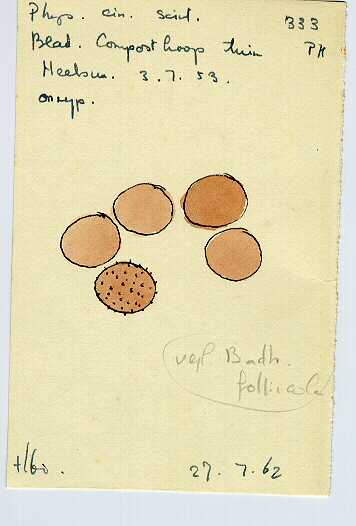 Phys. cin. scint. 333
Blad. Composthoop tuin PH
Heelsum. 3.7.53.
onryp.
vgl. Badh.
foliicola.
27.7.62